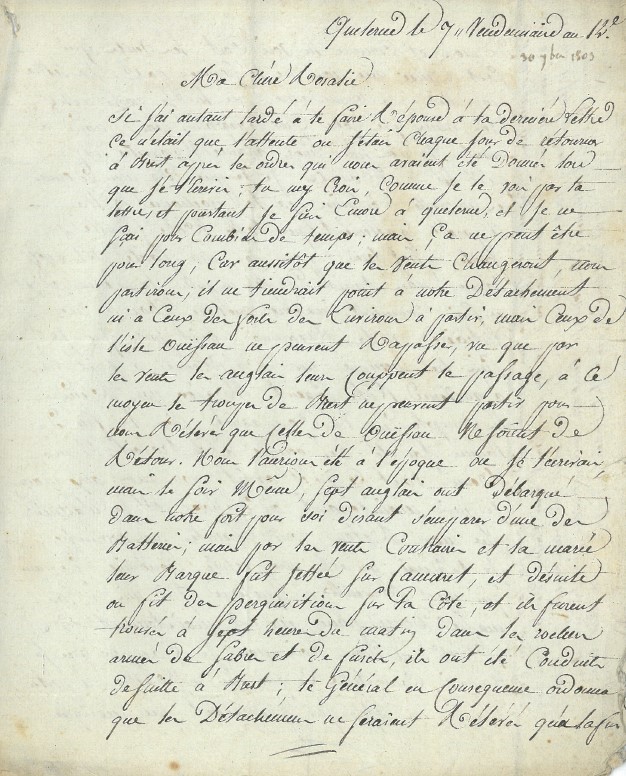 Quelerne le 7,, Vendemiaire an 12.e
30 7bre 1803
Ma Chére Rosalie
Si j'ai autant tardé à te faire Réponse à ta derniére Lettre
Ce n'était que l'attente ou j'etais Chaque jour de retourner
à Brest après les ordres qui nous avaient été Donner lors
que je t'écrivis; tu my Crois, Comme je le vois par ta
lettre, et pourtant je suis Encore à quelerne, et je ne
sçai pour Combien de temps; mais Ça ne peut être
pour long, Car aussitôt que les Vents Changeront, nous
partirons; il ne tiendrait point à notre Détachement
ni à Ceux des forts des Environs à partir, mais Ceux de
l'isle Ouissan ne peuvent Rapasse, vu que par
les vents les anglais leurs Couppent le passage, à Cé
moyen les trouppes de Brest ne peuvent partir pour
nous Réléver que Celles de Ouissan Ne soient de
Rétour. Nous l'aurions été à l'époque ou jé t'écrivais
mais le soir Même, sept anglais ont Débarqué
dans notre fort pour soi disant s'emparer d'une des
Batteries; mais par les vents Contraires et la marée
leur Barque fut Jettée sur Camaret, et désuite
on fit des perquisitions sur la Côte, et ils furent
trouvés à sept heures du matin dans les rochers
armés de sabres et de fusils, ils ont été Conduits
desuitte à Brest; le Général en Consequence ordonna
que les Détachemens ne seraient Rélévés qu'a la fin